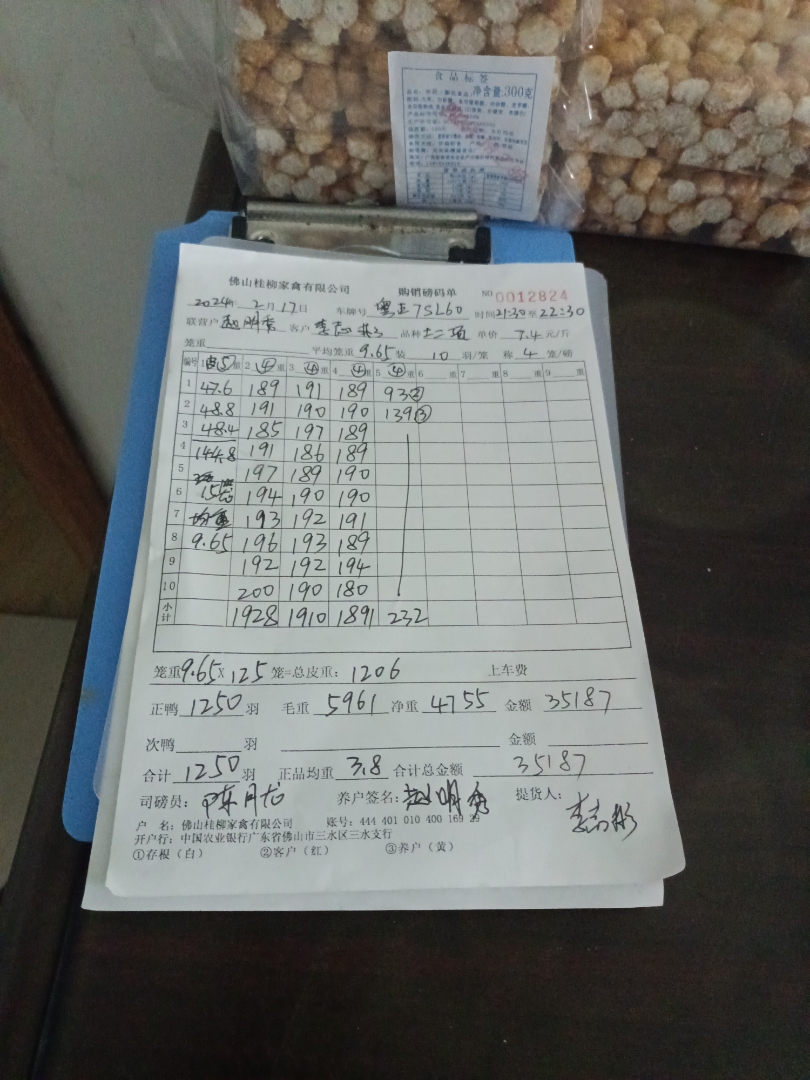 食品标签
净含量:300克
佛山桂柳家禽有限公司 购销磅码单 NO 0012824
2024年 2月 17日 车牌号 粤E75L60 时间21:30至22:30
联营户 赵明秀 客户 李志彬 品种 土二项 单价 7.4 元/斤
笼重 平均笼重 9.65 装 10 羽/笼 称 4 笼/磅
编号 1 ⑤ 重 2 ④ 重 3 ④ 重 4 ④ 重 5 ④ 重 6 重 7 重 8 重 9 重
1 47.6 189 191 189 93②
2 48.8 191 190 190 139③
3 48.4 185 197 189
4 144.8 191 186 189
5 197 189 190
6 194 190 190
7 均重 193 192 191
8 9.65 196 193 189
9 192 192 194
10 200 190 180
小计 1928 1910 1891 232
笼重9.65X 125 笼=总皮重: 1206 上车费
正鸭 1250 羽 毛重 5961 净重 4755 金额 35187
次鸭 羽 金额
合计 1250 羽 正品均重 3.8 合计总金额 35187
司磅员: 养户签名: 赵明秀 提货人: 李志彬
户 名: 佛山桂柳家禽有限公司 账号: 444 401 010 400 169 29
开户行: 中国农业银行广东省佛山市三水区三水支行
①存根(白) ②客户(红) ③养户(黄)